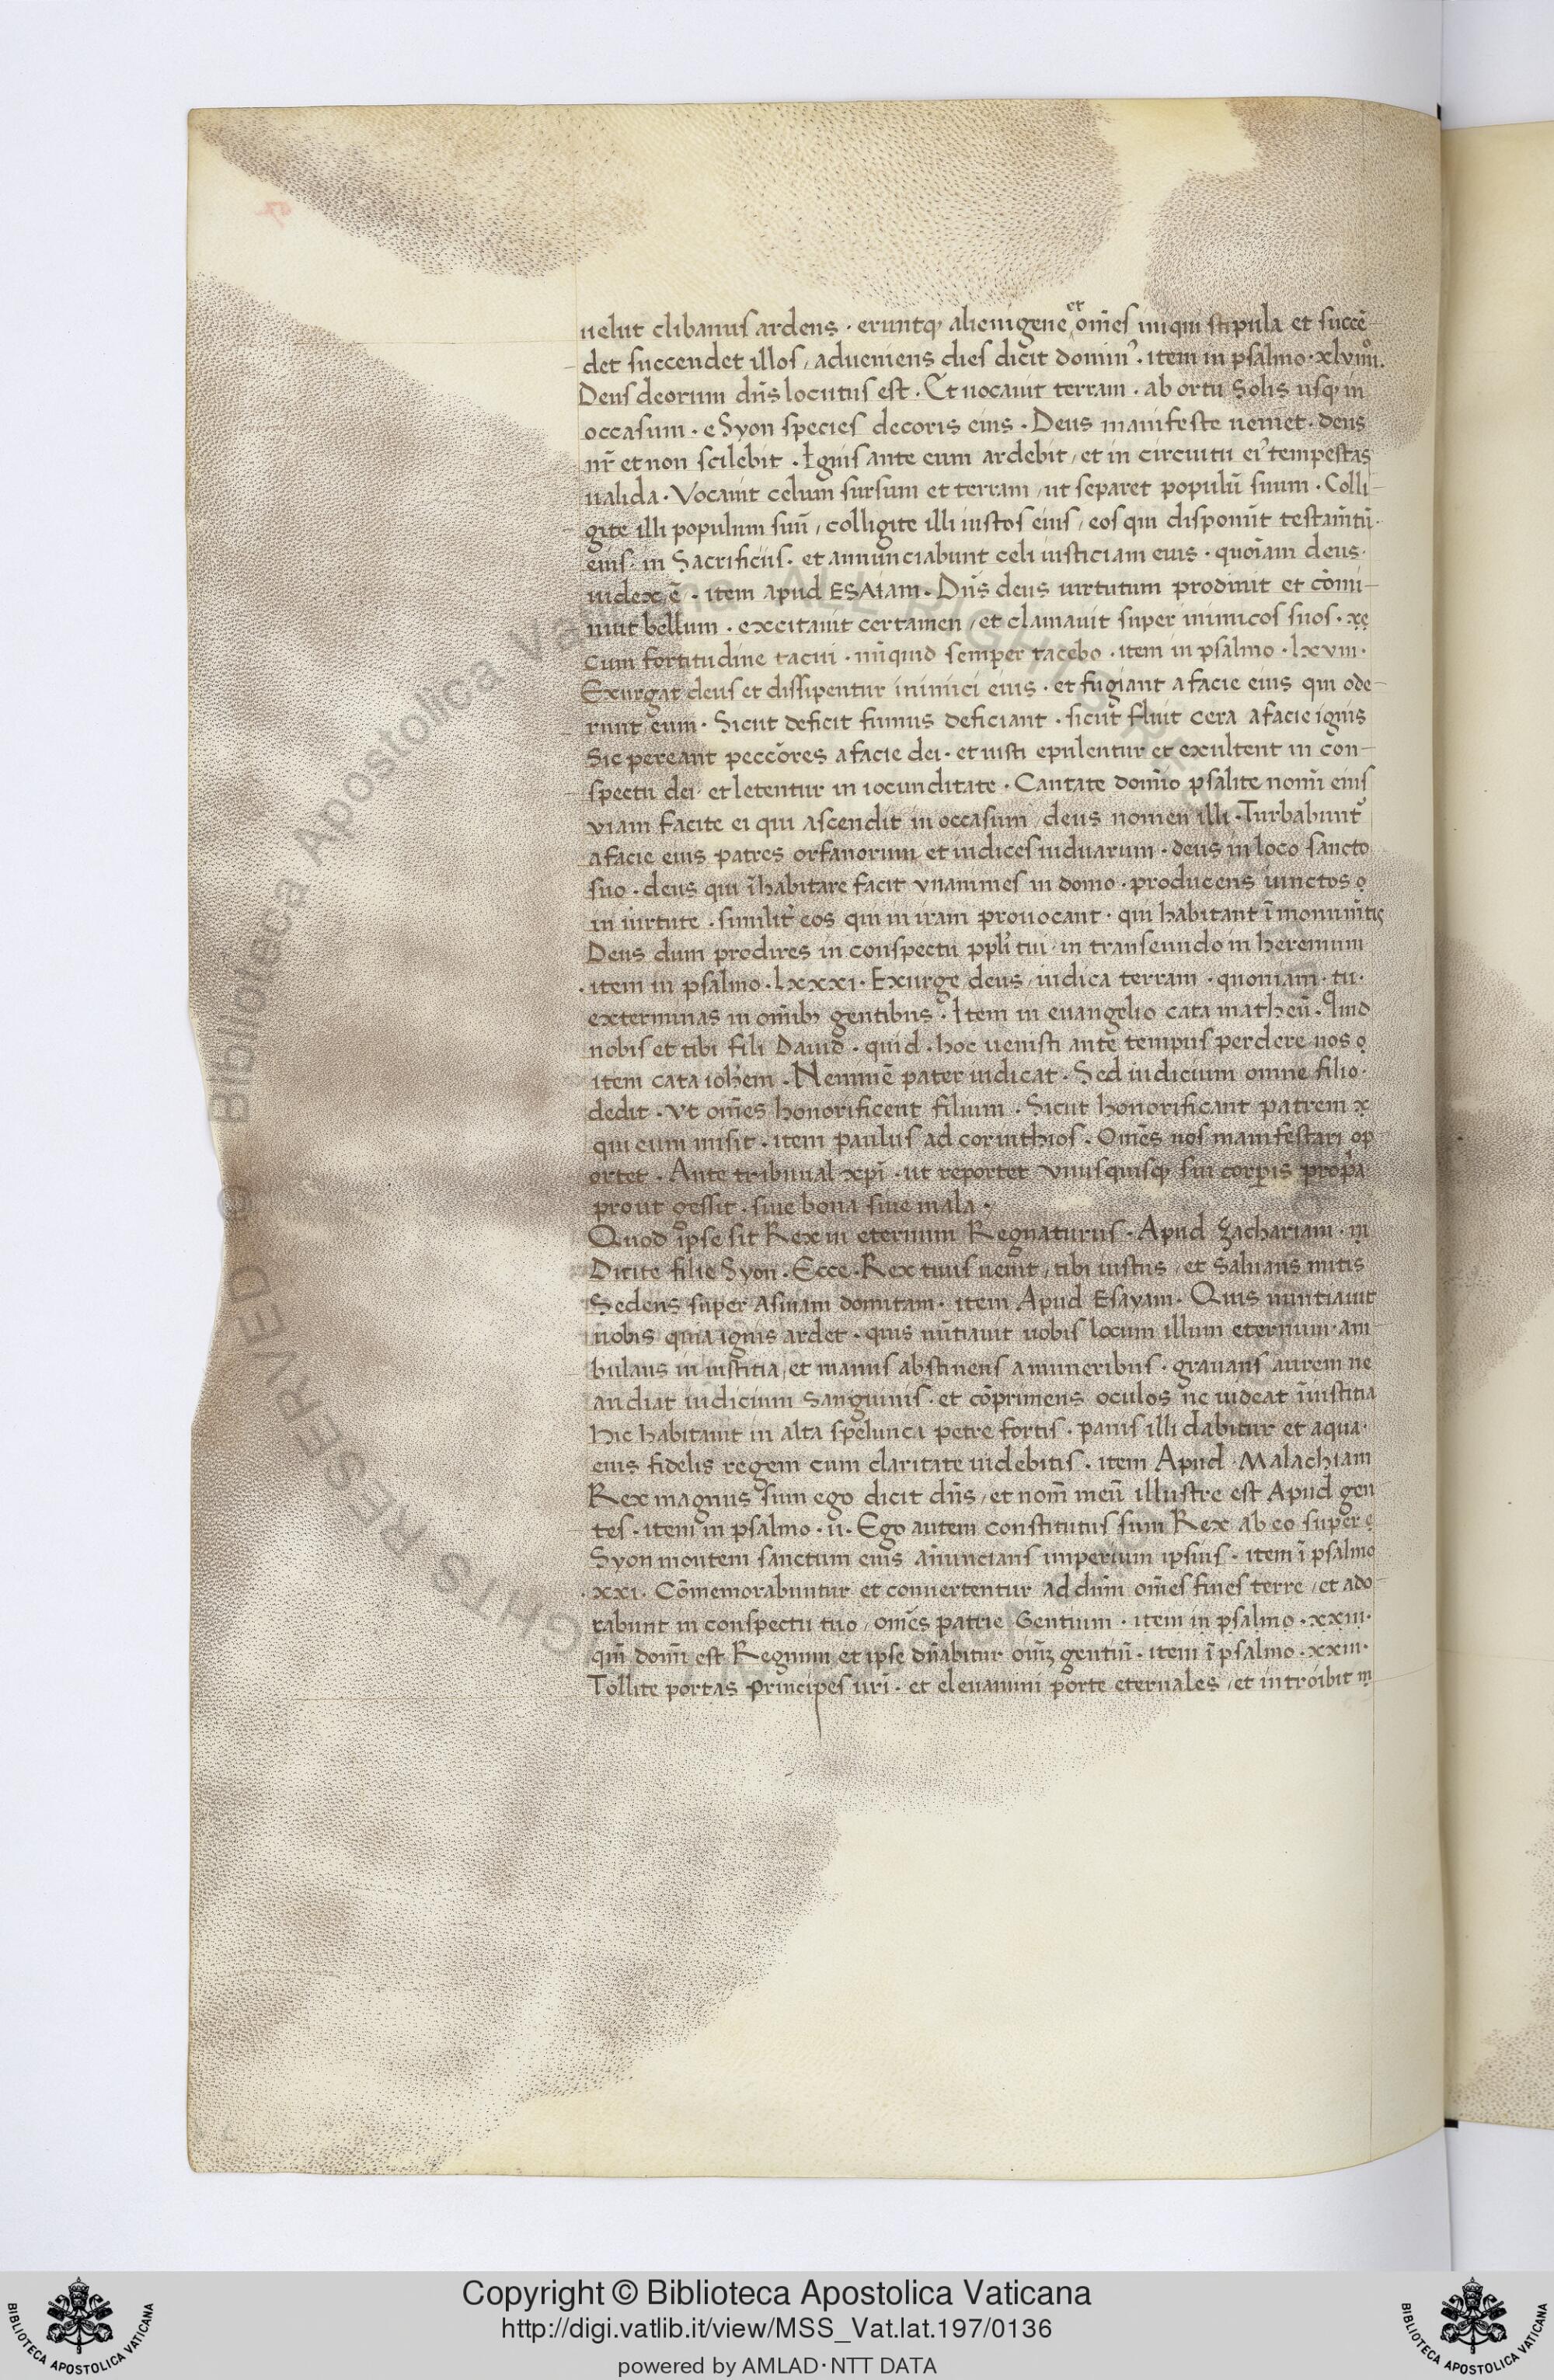 uelut clibanus ardens · eruntq; alienigene et om̄es iniqui stipula et succē
det succendet illos, adueniens dies dicit domin⁹ · item in psalmo · xlviiii.
Deus deorum dn̄s locutus est · Et uocauit terram · ab ortu Solis usq; in
occasum · e Syon species decoris eius · Deus manifeste ueniet · deus
nr̄ et non scilebit · Ignis ante eum ardebit, et in circuitu ei⁹ tempestas
ualida · Vocauit celum sursum et terram, ut separet populū suum · Colli
gite illi populum suū, colligite illi iustos eius, eos qui disponūt testam̄tū·
eius · in Sacrificiis · et annunciabunt celi iusticiam eius · quoīam deus·
iudex ē · item apud ESAIam · Dn̄s deus uirtutum prodiuit et cōmi
nuit bellum · excitauit certamen, et clamauit super inimicos suos ·
cum fortitudine tacui · nūquid semper tacebo · item in psalmo · lxvii·
Exurgat deus et dissipentur inimici eius · et fugiant a facie eius qui ode
runt eum · Sicut deficit fumus deficiant · sicut fluit cera a facie ignis
Sic pereant peccōres a facie dei · et iusti epulentur et exultent in con
spectu dei · et letentur in iocunditate · Cantate domīo psalite nomī eius
viam facite ei qui ascendit in occasum, deus nomen illi · Turbabunt᷑
a facie eius patres orfanorum, et iudices uiduarum · deus in loco sancto
suo · deus qui īhabitare facit vnanimes in domo · producens uinctos
in uirtute · similit᷑ eos qui in iram prouocant · qui habitant ī monum̄tis
Deus dum prodires in conspectu ppl̄i tui · in transeundo in heremum
· item in psalmo · lxxxi · Exurge deus, iudica terram · quoniam · tu·
exterminas in om̄ib; gentibus · Item in euangelio cata matheū · Quid
nobis et tibi fili Dauid · quid · hoc uenisti ante tempus perdere nos
item cata ioh̄em · Neminē pater iudicat · Sed iudicium omne filio·
dedit · vt om̄es honorificent filium · Sicut honorificant patrem
qui eum misit · item paulus ad corinthios · Om̄es nos manifestari op
ortet · Ante tribunal xp̄i · ut reportet vnusquisq; sui corp̄is prop̄a
prout gessit · siue bona siue mala ·
Quod ipse sit Rex in eternum Regnaturus · Apud zachariam · in
Dicite filie Syon · Ecce · Rex tuus uenit, tibi iustus, et Saluans mitis
Sedens super Asinam domitam · item Apud Esayam · Quis nuntiauit
uobis quia ignis ardet · quis nūtiauit uobis locum illum eternum · am
bulans in iustitia, et manus abstinens a muneribus · grauans aurem ne
audiat iudicium Sanguinis · et cōprimens oculos ne uideat īiustitia
hic habitauit in alta spelunca petre fortis · panis illi dabitur et aqua·
eius fidelis regem cum claritate uidebitis · item Apud Malachiam
Rex magnus sum ego dicit dn̄s, et nom̄ meū illustre est Apud gen
tes · item in psalmo · ii · Ego autem constitutus sum Rex ab eo super
Syon montem sanctum eius an̄uncians imperium ipsius · item ī psalmo
· xxi · Cōmemorabuntur et conuertentur ad dn̄m om̄es fines terre, et ado
rabunt in conspectu tuo, om̄es patrie Gentium · item in psalmo · xxiii·
qm̄ domī est Regnum et ipse dn̄abitur om̄iꝫ gentiū · item ī psalmo · xxiii·
Tollite portas principes ur̄i · et eleuamini porte eternales, et introibit
© Biblioteca Apostolica Vaticana ALL RIGHTS RESERVED
Copyright © Biblioteca Apostolica Vaticana
http://digi.vatlib.it/view/MSS_Vat.lat.197/0136
powered by AMLAD·NTT DATA
BIBLIOTECA APOSTOLICA VATICANA
BIBLIOTECA APOSTOLICA VATICANA